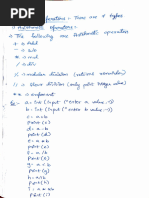 operators :- There are 7 types
Arithmetic operators:-
→ The following are Arithmetic operators
+ → Add
- → sub
* → mul
/ → div
% → modulus division (returns remainder)
// → floor division (only gives integer value)
** → exponent
Ex:- a = int (input ("enter a value :"))
b = int (input ("enter b value :"))
c = a+b
print (c)
d = a-b
print (d)
e = a*b
print (e)
f = a/b
print (f)
g = a%b
print (g)
h = a//b
print (h)
i = a**b
print (i)